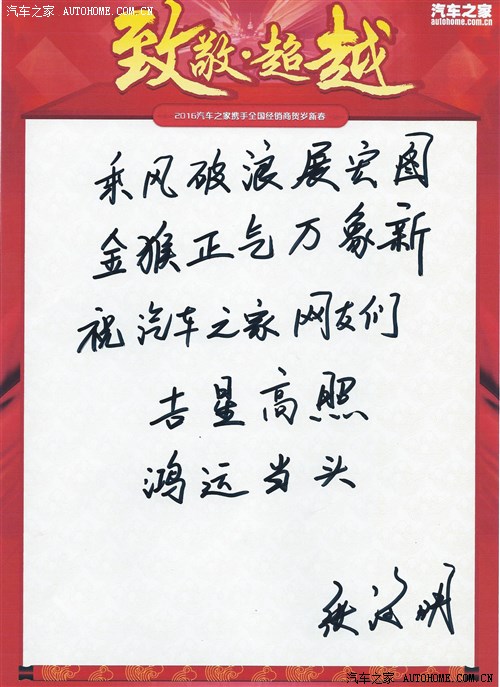 汽车之家
AUTOHOME.COM.CN
汽车之家
autohome.com.cn
致敬·超越
2016汽车之家携手全国经销商贺岁新春
乘风破浪展宏图
金猴正气万象新
祝汽车之家网友们
吉星高照
鸿运当头
汽车之家
AUTOHOME.COM.CN